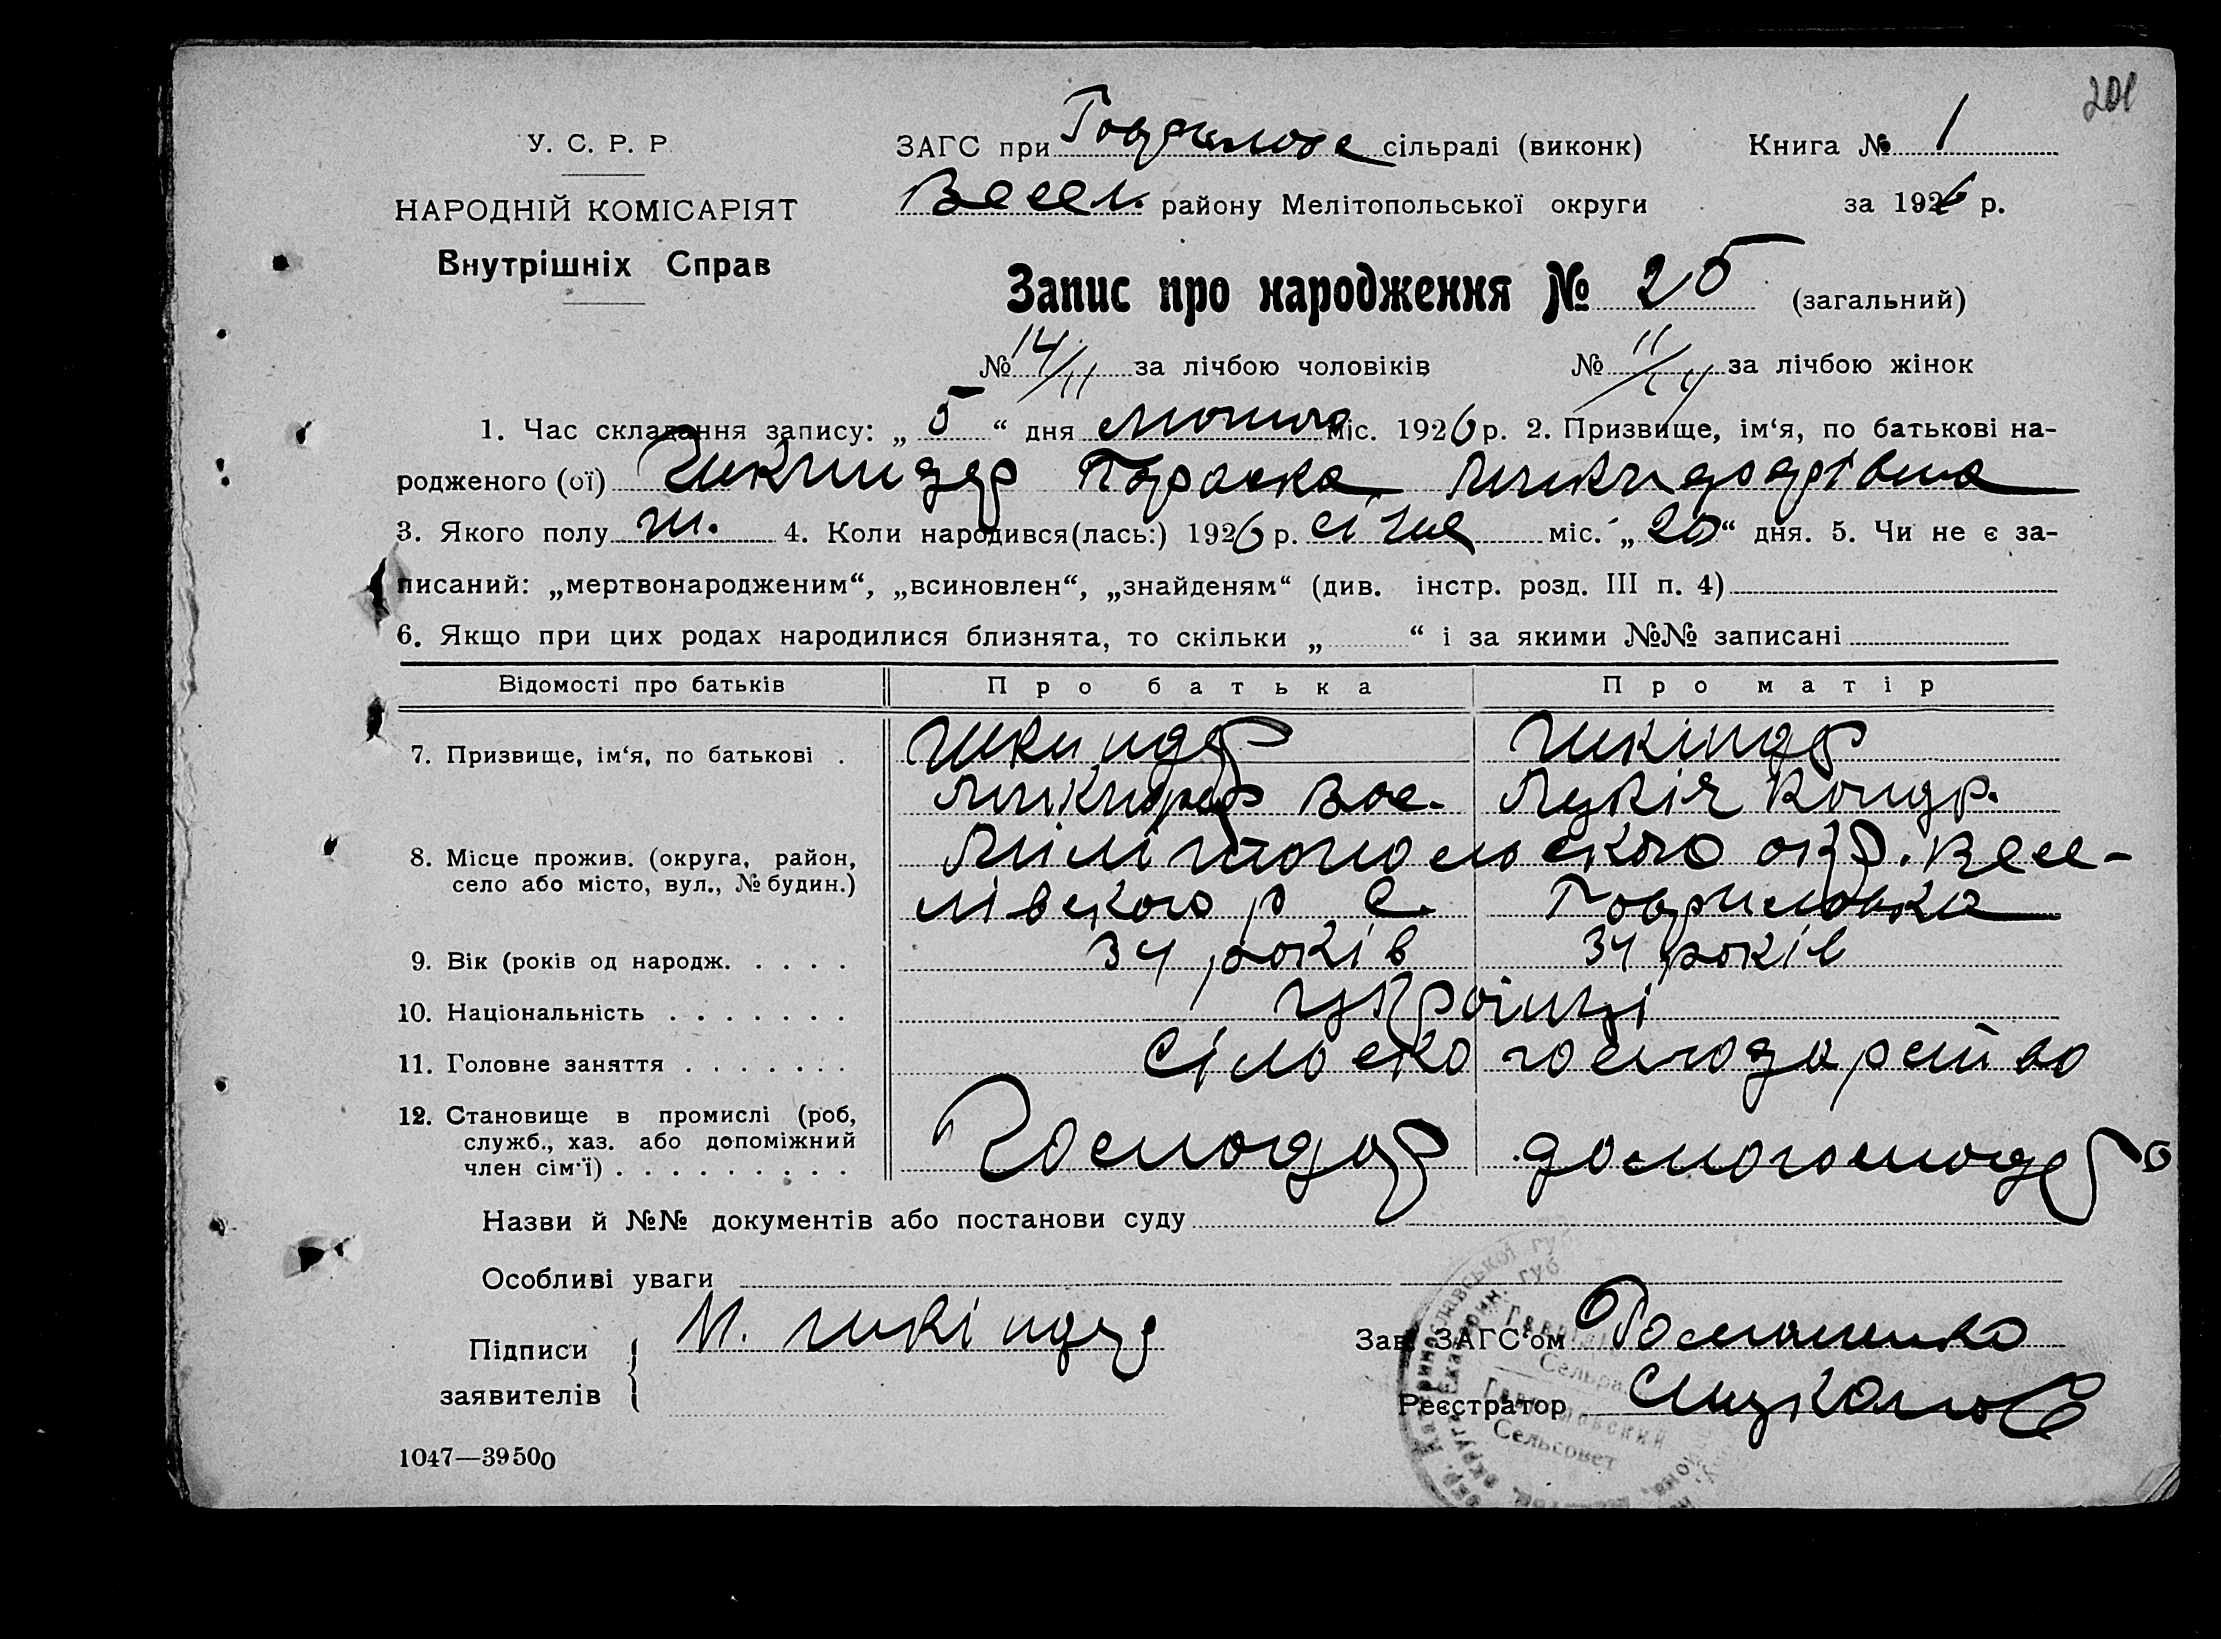 201
У. С. Р. Р
НАРОДНІЙ КОМІСАРІЯТ
Внутрішніх Справ
ЗАГС при сільраді (виконк)
Книга № 1
Весел. району Мелітопольської округи
за 1926 р.
Запис про народження № 25 (загальний)
№ 14/11 за лічбою чоловіків № 11/14 за лічбою жінок
1. Час складання запису: „ 5 “ дня лютого міс. 1926 р. 2. Призвище, ім‘я, по батькові на-
родженого (ої) Параска
3. Якого полу ж. 4. Коли народився(лась:) 1926 р. січня міс. „ 20 “ дня. 5. Чи не є за-
писаний: „мертвонародженим“, „всиновлен“, „знайденям“ (див. інстр. розд. III п. 4)
6. Якщо при цих родах народилися близнята, то скільки „ “ і за якими №№ записані
Відомості про батьків Про батька Про матір
7. Призвище, ім‘я, по батькові . Шкиндер Шкіндер
Вас. Лукія Кондр.
8. Місце прожив. (округа, район, село або місто, вул., № будин.) Мілітопольского окр. Весе-
лівского р с. Гавриловка
9. Вік (років од народж. . . . . 34 років 34 років
10. Національність . . . . . . . українці
11. Головне заняття . . . . . . . сільско господарство
12. Становище в промислі (роб, служб., хаз. або допоміжний член сім‘ї) . . . . . . . . . Господар домогосподар
Назви й №№ документів або постанови суду
Особливі уваги
Підписи заявителів
Зав. ЗАГС‘ом Романенко
Реєстратор
Сельсовет
1047—39500